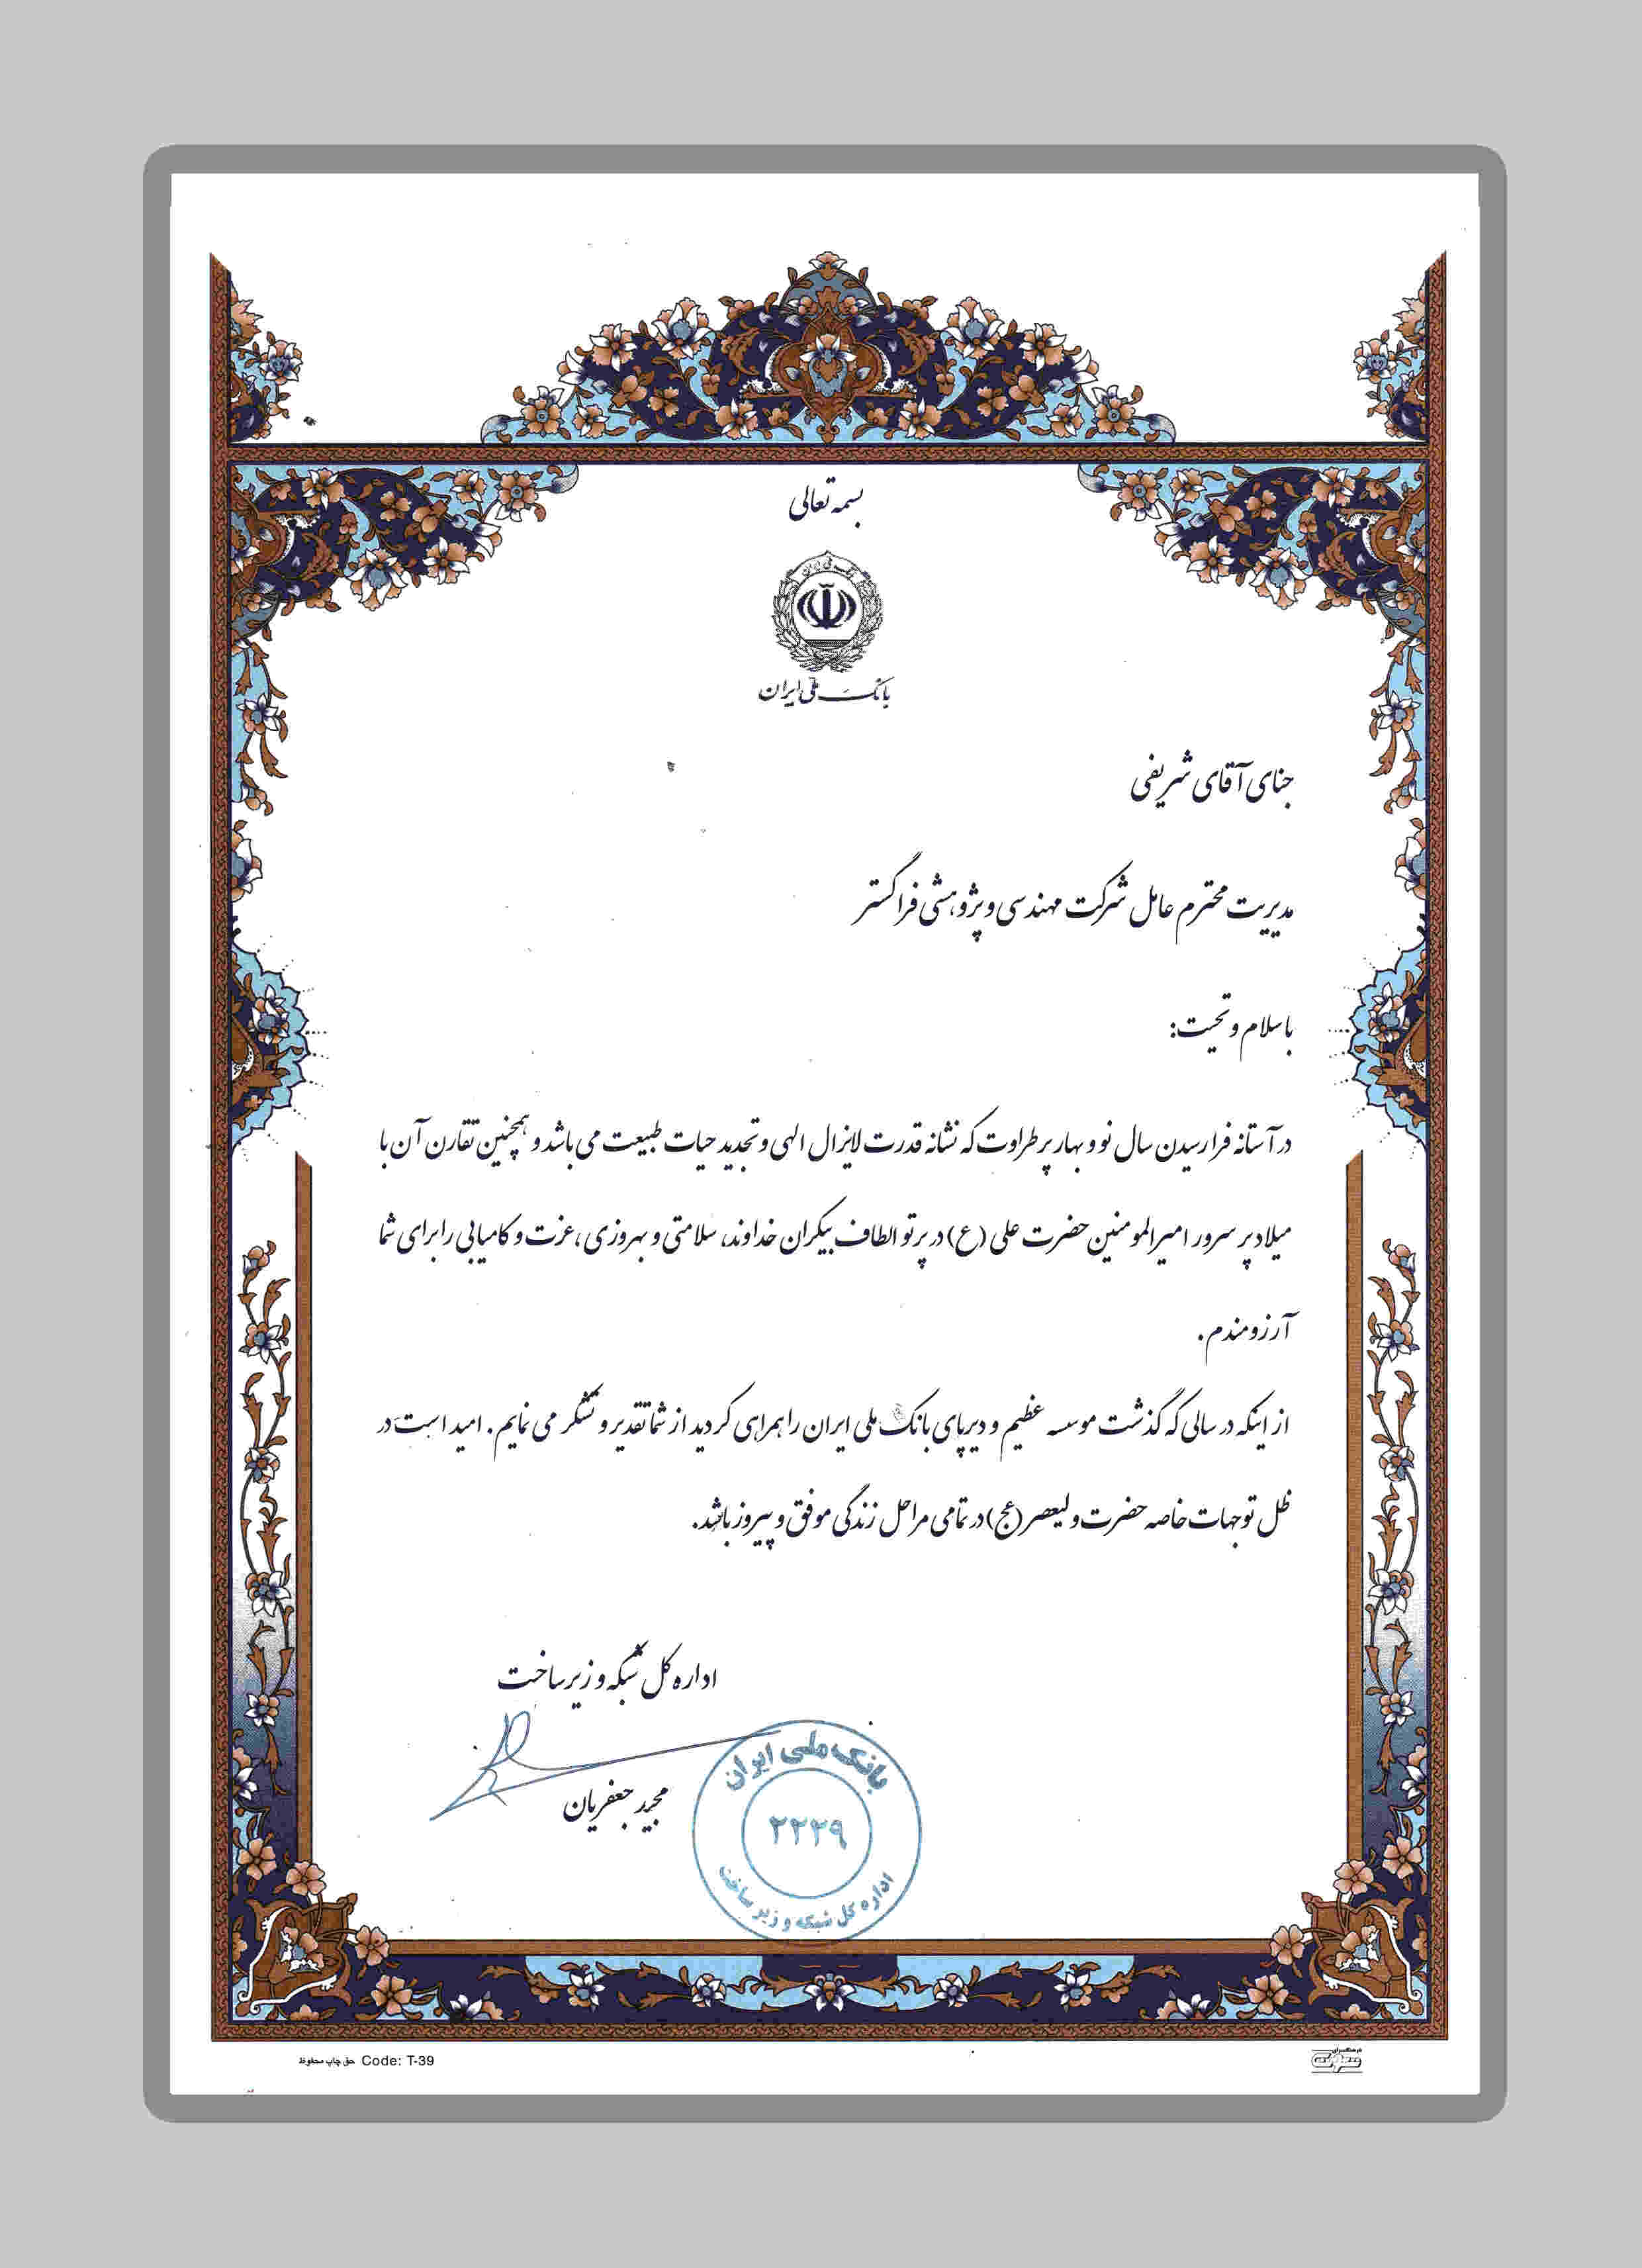 بسمه تعالی
بانک ملی ایران
جنای آقای شریفی
مدیریت محترم عامل شرکت مهندسی و پژوهشی فراگستر
با سلام و تحیت:
در آستانه فرا رسیدن سال نو و بهار پر طراوت که نشانه قدرت لایزال الهی و تجدید حیات طبیعت می باشد و همچنین تقارن آن با
میلاد پر سرور امیرالمومنین حضرت علی (ع) در پرتو الطاف بیکران خداوند، سلامتی و بهروزی ،عزت و کامیابی را برای شما
آرزومندم.
از اینکه در سالی که گذشت موسسه عظیم و دیرپای بانک ملی ایران را همراهی کردید از شما تقدیر و تشکر می نمایم. امید است در
ظل توجهات خاصه حضرت ولیعصر (عج) در تمامی مراحل زندگی موفق و پیروز باشید.
اداره کل شبکه و زیرساخت
مجید جعفریان
بانک ملی ایران
۲۲۲۹
اداره کل شبکه و زیر ساخت
حق چاپ محفوظ Code: T-39